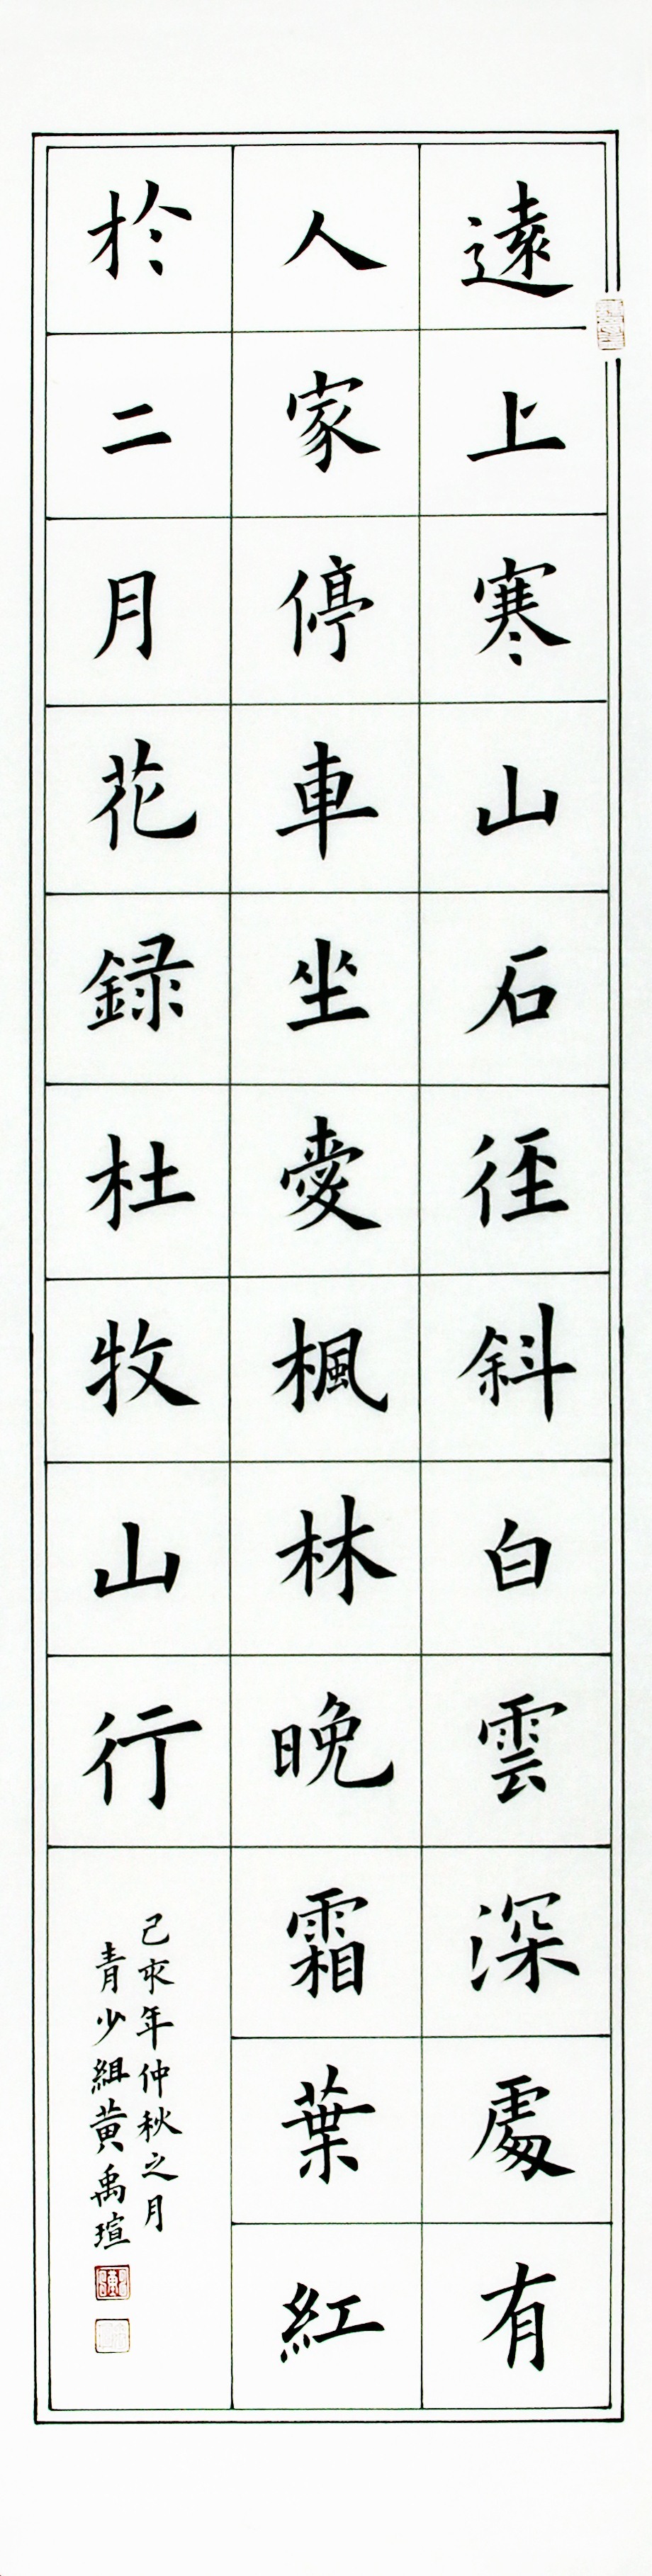 遠上寒山石徑斜白雲深處有
人家停車坐愛楓林晚霜葉紅
於二月花錄杜牧山行
己亥年仲秋之月
青少組黃禹瑄